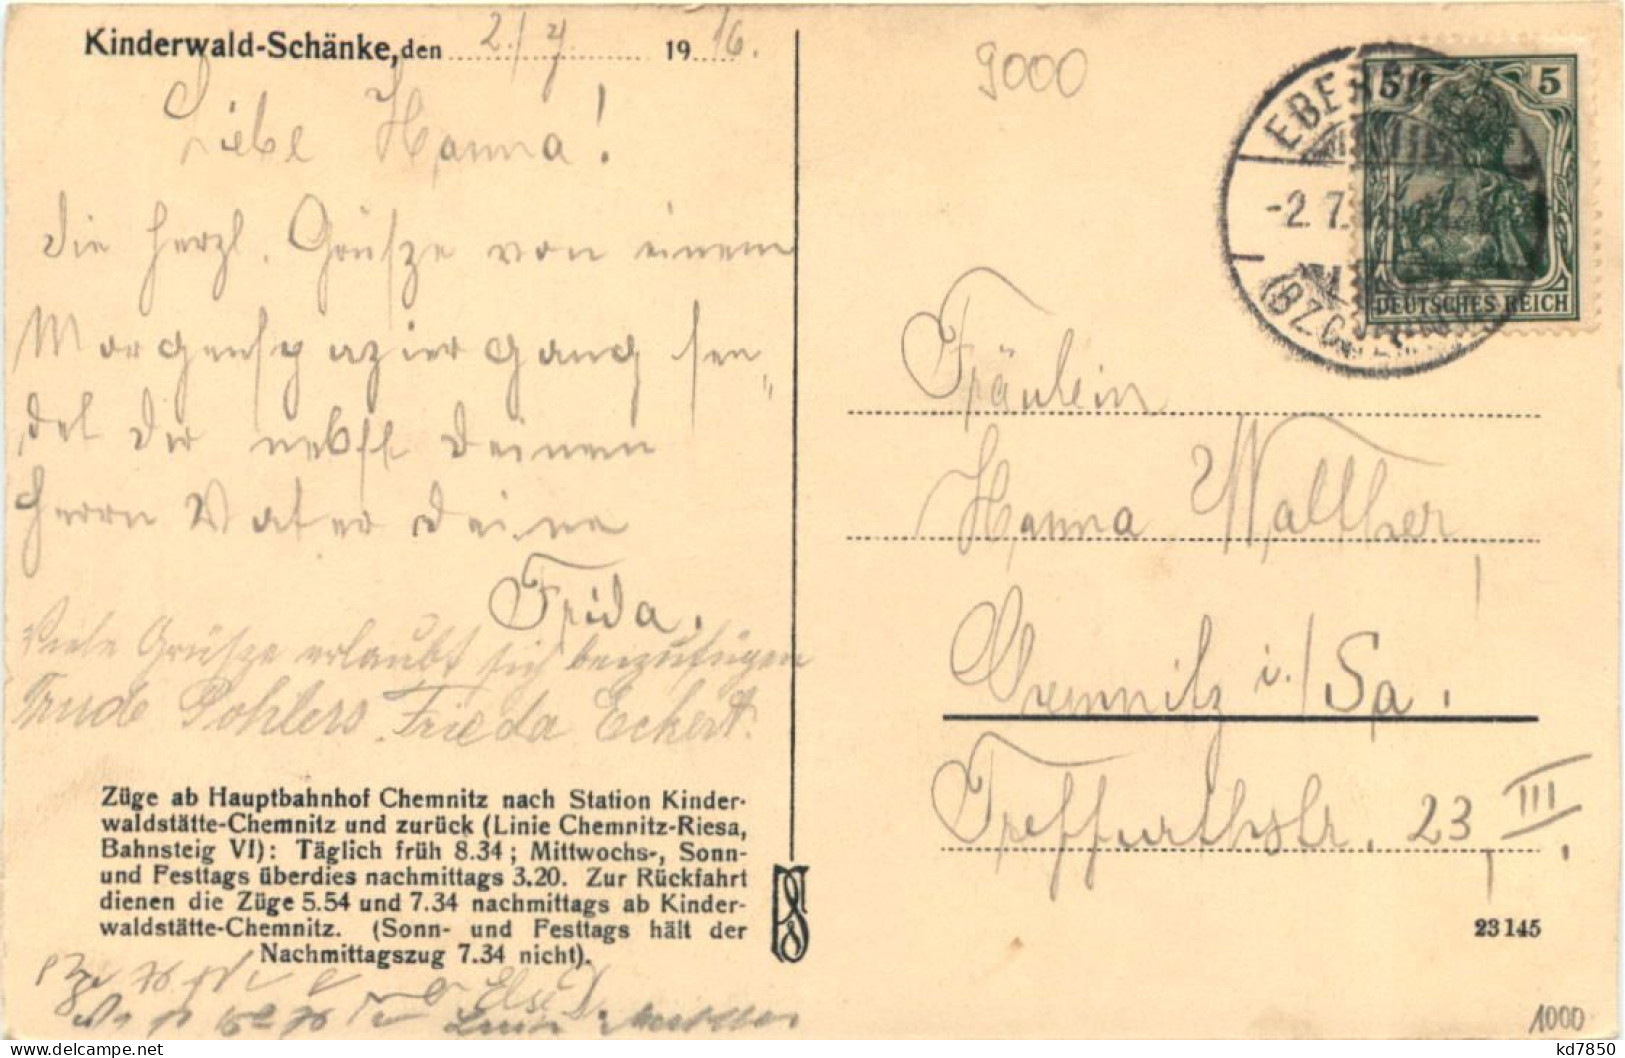 Kinderwald-Schänke, den 2./7. 1916.
Liebe Hanna!
Die herzl. Grüsze von einem
Morgenspaziergang sen„
det Dir nebst Deinem
Herrn Vater Deine
Frida.
Viele Grüsze erlaubt sich beizufügen
Trude Pohlers Frieda Eckert.
Züge ab Hauptbahnhof Chemnitz nach Station Kinder-
waldstätte-Chemnitz und zurück (Linie Chemnitz-Riesa,
Bahnsteig VI): Täglich früh 8.34; Mittwochs-, Sonn-
und Festtags überdies nachmittags 3.20. Zur Rückfahrt
dienen die Züge 5.54 und 7.34 nachmittags ab Kinder-
waldstätte-Chemnitz. (Sonn- und Festtags hält der
Nachmittagszug 7.34 nicht).
Else
9000
5 5
DEUTSCHES REICH
-2.7.
(BZ.
Fräulein
Hanna Walther,
Chemnitz i./Sa.
Treffurthstr. 23, III.
23145
1000
kd7850